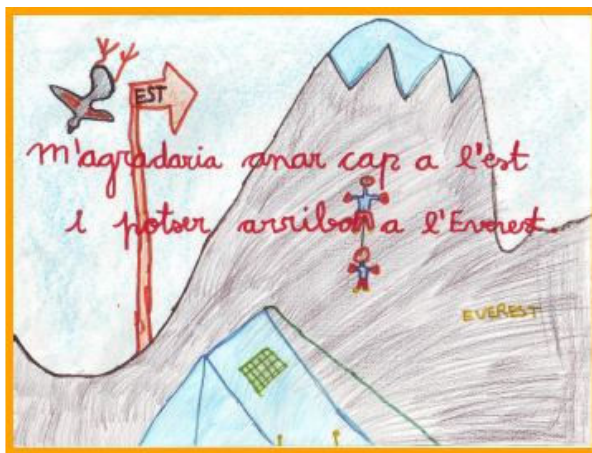 EST
m'agradaria anar cap a l'est
i potser arribar a l'Everest.
EVEREST